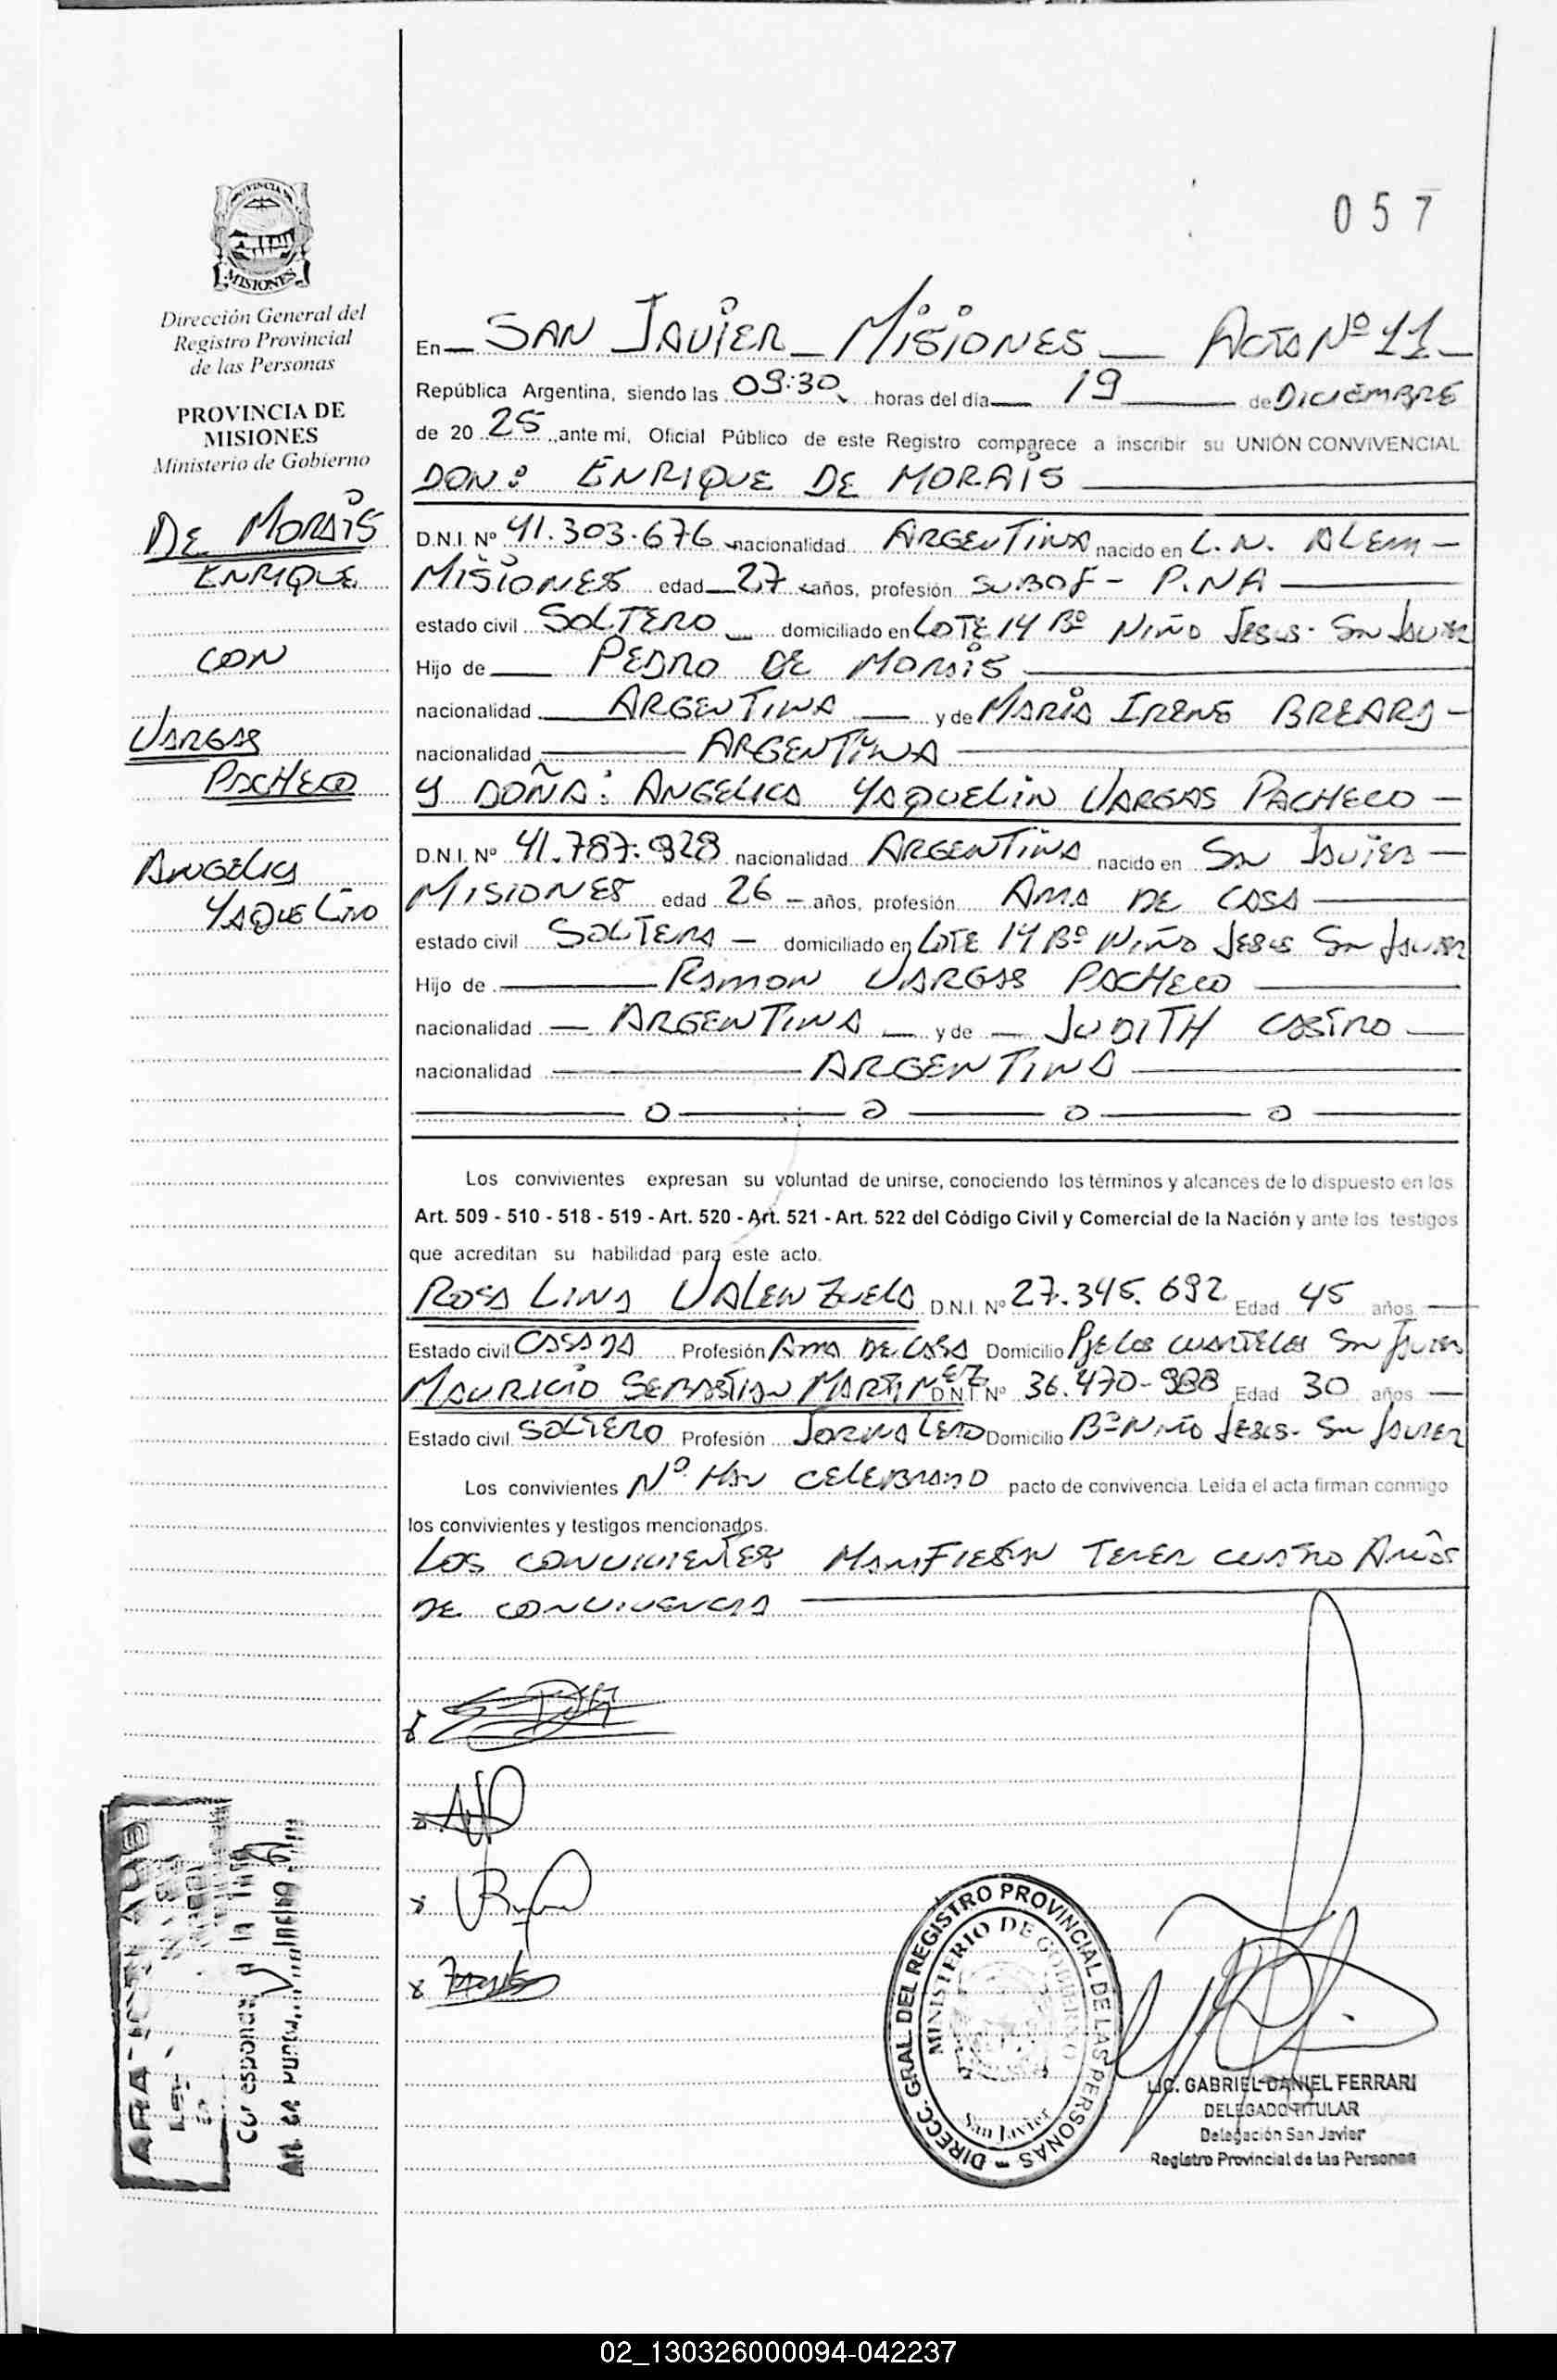 057
PROVINCIA
MISIONES
Dirección General del
Registro Provincial
de las Personas
PROVINCIA DE
MISIONES
Ministerio de Gobierno
DE MORAIS
ENRIQUE
CON
VARGAS
PACHECO
ANGELICA
YAQUELIN
En SAN JAVIER - MISIONES - ACTA Nº 11 -
República Argentina, siendo las 09:30 horas del día 19 de DICIEMBRE
de 20 25 ,ante mi, Oficial Público de este Registro comparece a inscribir su UNIÓN CONVIVENCIAL
DON: ENRIQUE DE MORAIS
D.N.I. Nº 41.303.676 nacionalidad ARGENTINA nacido en L.N. ALEM -
MISIONES edad 27 años, profesión SUBOF - P.NA
estado civil SOLTERO domiciliado en LOTE 14 Bº NIÑO JESUS - SAN JAVIER
Hijo de PEDRO DE MORAIS
nacionalidad ARGENTINA y de MARIA IRENE
nacionalidad ARGENTINA
Y DOÑA: ANGELICA YAQUELIN VARGAS PACHECO -
D.N.I. Nº 41.787.928 nacionalidad ARGENTINA nacido en SAN JAVIER -
MISIONES edad 26 - años, profesión AMA DE CASA
estado civil SOLTERA - domiciliado en LOTE 14 Bº NIÑO JESUS SAN JAVIER
Hijo de RAMON VARGAS PACHECO
nacionalidad - ARGENTINA - y de - JUDITH CASTRO
nacionalidad ARGENTINA
Los convivientes expresan su voluntad de unirse, conociendo los términos y alcances de lo dispuesto en los
Art. 509 - 510 - 518 - 519 - Art. 520 - Art. 521 - Art. 522 del Código Civil y Comercial de la Nación y ante los testigos
que acreditan su habilidad para este acto.
ROSA LINA VALENZUELA D.N.I. Nº 27.345.692 Edad 45 años
Estado civil CASADA Profesión AMA DE CASA Domicilio PJE LOS CUARTELES SAN JAVIER
MAURICIO SEBASTIAN MARTINEZ D.N.I. Nº 36.470-988 Edad 30 años
Estado civil SOLTERO Profesión JORNALERO Domicilio Bº NIÑO JESUS - SAN JAVIER
Los convivientes Nº HAN CELEBRADO pacto de convivencia. Leída el acta firman conmigo
los convivientes y testigos mencionados.
LOS CONVIVIENTES MANIFIESTAN TENER CUATRO AÑOS
DE CONVIVENCIA
DIRECC. GRAL DEL REGISTRO PROVINCIAL DE LAS PERSONAS
MINISTERIO DE GOBIERNO
San Javier
LIC. GABRIEL DANIEL FERRARI
DELEGADO TITULAR
Delegación San Javier
Registro Provincial de Las Personas
02_130326000094-042237